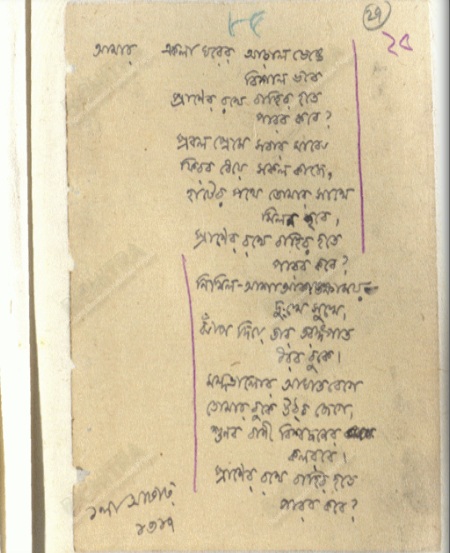 ৮৫
২৭
২৫
আমার একলা ঘরের আড়াল ভেঙে
বিশাল ভবে
প্রাণের রথে বাহির হতে
পারব কবে?
প্রবল প্রেমে সবার মাঝে
ফিরব ধেয়ে সকল কাজে,
হাটের পথে তোমার সাথে
মিলন হবে,
প্রাণের রথে বাহির হতে
পারব কবে?
নিখিল-আশা-আকাঙ্ক্ষাময়
দুঃখে সুখে,
ঝাঁপ দিয়ে তার তরঙ্গপাত
ধরব বুকে।
মন্দভালোর আঘাতবেগে
তোমার বুকে উঠব জেগে,
শুনব বাণী বিশ্বজনের
কলরবে।
প্রাণের রথে বাহির হতে
পারব কবে?
১লা আষাঢ়
১৩১৭